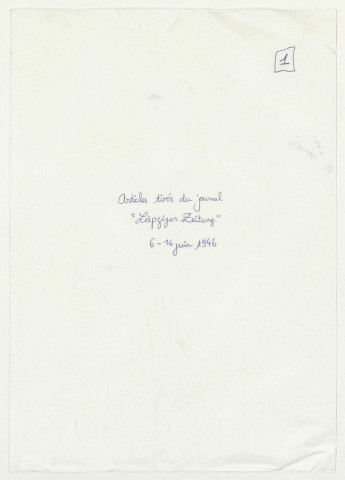 1
Articles tirés du journal
"Leipziger Zeitung"
6 - 14 juin 1946